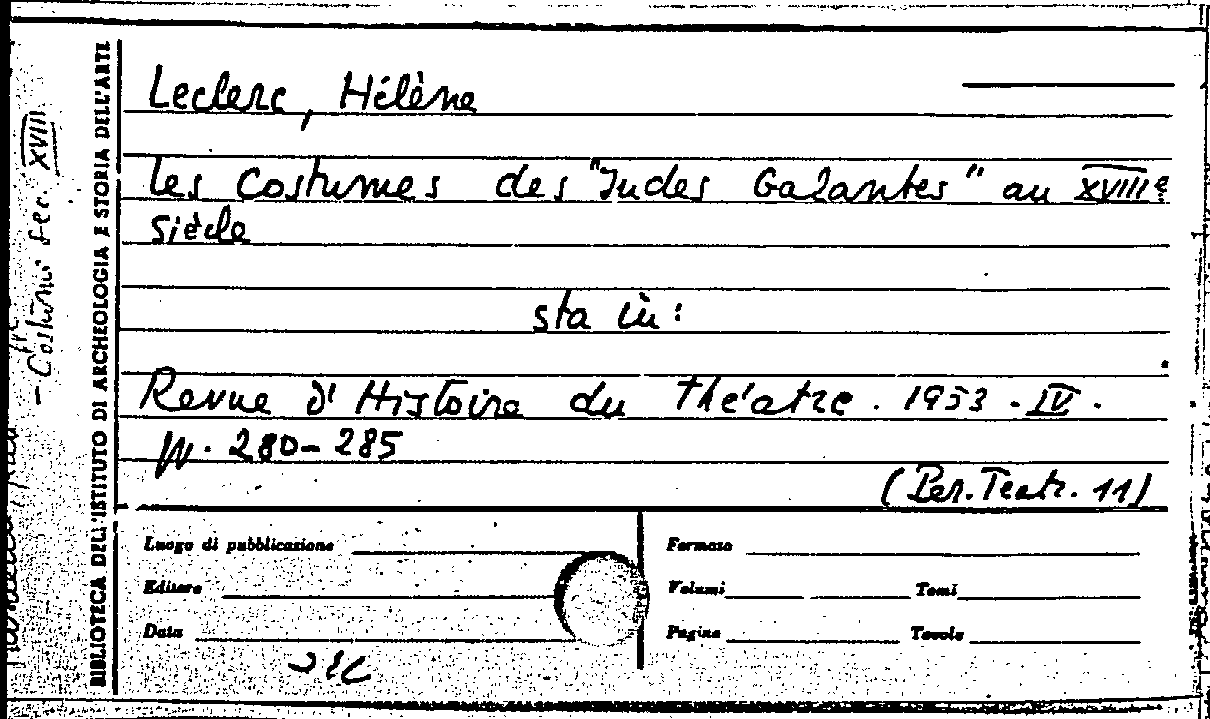 Leclerc, Hélène
Les Costumes des "Indes Galantes" au XVIIIe
siècle
sta in:
Revue d'Histoire du Théatre. 1953 - IV.
pp. 280-285
(Per. Teatr. 11)
Luogo di pubblicazione
Editore
Data
Formato
Volumi Tomi
Pagine Tavole
BIBLIOTECA DELL'ISTITUTO DI ARCHEOLOGIA E STORIA DELL'ARTE
- Costumi sec. XVIII